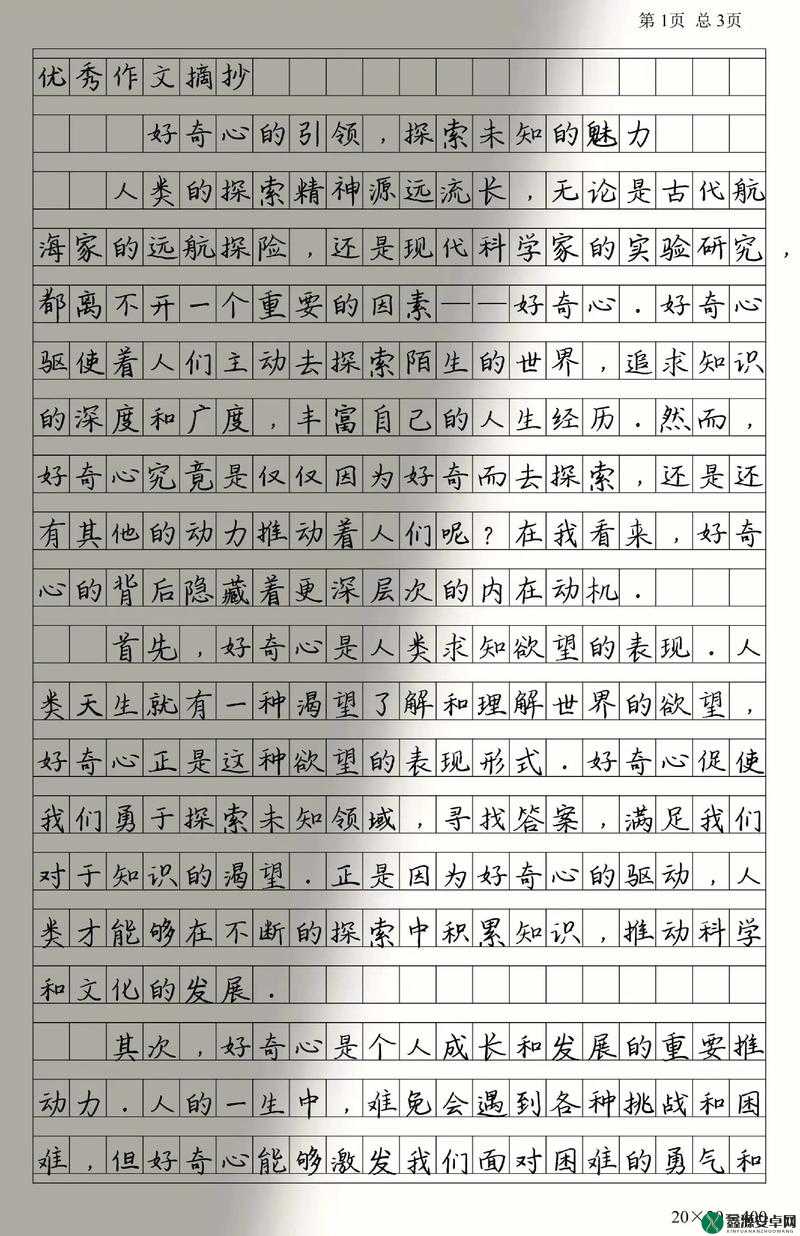 第1页 总3页
优秀作文摘抄
好奇心的引领，探索未知的魅力
人类的探索精神源远流长，无论是古代航
海家的远航探险，还是现代科学家的实验研究，
都离不开一个重要的因素——好奇心．好奇心
驱使着人们主动去探索陌生的世界，追求知识
的深度和广度，丰富自己的人生经历．然而，
好奇心究竟是仅仅因为好奇而去探索，还是还
有其他的动力推动着人们呢？在我看来，好奇
心的背后隐藏着更深层次的内在动机．
首先，好奇心是人类求知欲望的表现．人
类天生就有一种渴望了解和理解世界的欲望，
好奇心正是这种欲望的表现形式．好奇心促使
我们勇于探索未知领域，寻找答案，满足我们
对于知识的渴望．正是因为好奇心的驱动，人
类才能够在不断的探索中积累知识，推动科学
和文化的发展．
其次，好奇心是个人成长和发展的重要推
动力．人的一生中，难免会遇到各种挑战和困
难，但好奇心能够激发我们面对困难的勇气和
20×
鑫源安卓网
XINYUANANZHUOWANG